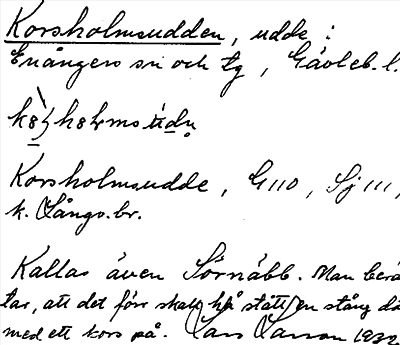 Korsholmsudden, udde i
Enångers sn och tg, Gävleb. l.
Korsholmsudde, G110, Sj 111,
k. Långs. br.
Kallas även Sörnäbb. Man berä
tar, att det förr skall ha stått en stång dä
med ett kors på. Lars Larson 1932